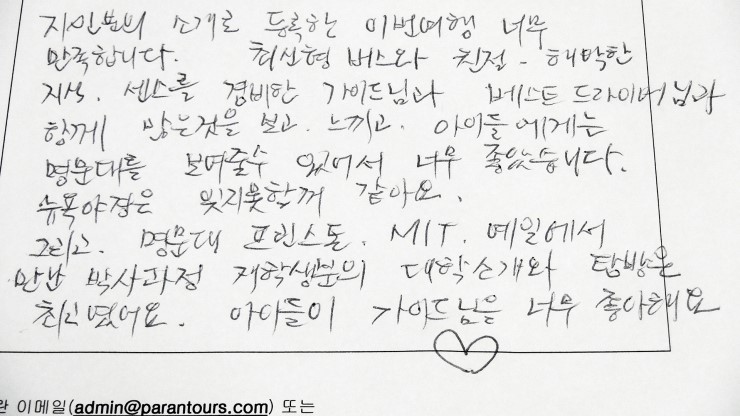 지인분의 소개로 등록한 이번여행 너무
만족합니다. 최신형 버스와 친절 - 해박한
지식. 센스를 겸비한 가이드님과 베스트드라이버님과
함께 많은것을 보고. 느끼고. 아이들에게는
명문대를 보여줄수 있어서 너무 좋았습니다.
뉴욕야경은 잊지못할꺼 같아요.
그리고. 명문대 프린스톤. MIT. 예일에서
만난 박사과정 재학생분의 대학소개와 탐방은
최고였어요. 아이들이 가이드님을 너무 좋아해요
이메일(admin@parantours.com) 또는